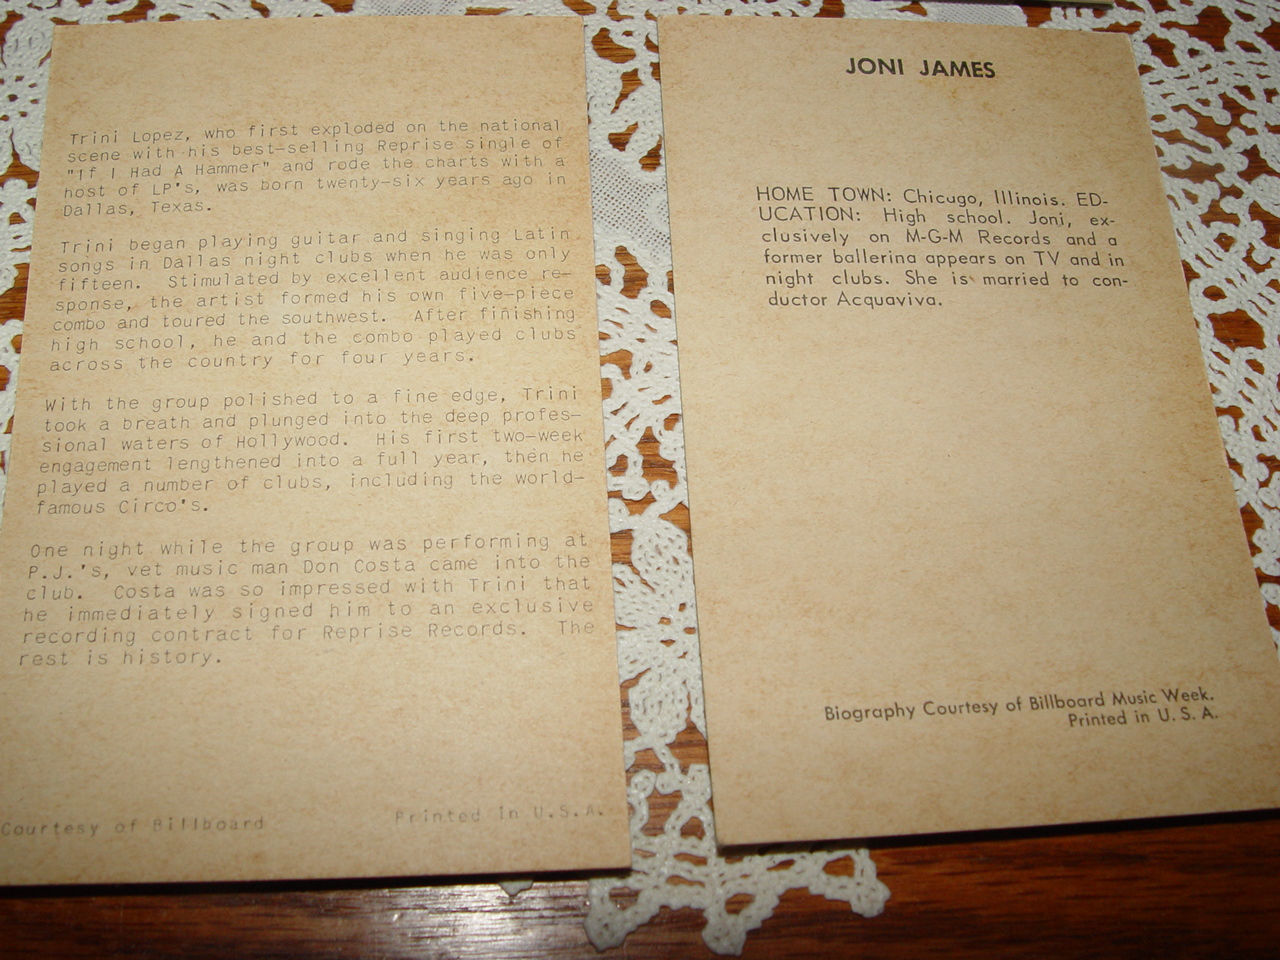 Trini Lopez, who first exploded on the national
scene with his best-selling Reprise single of
"If I Had A Hammer" and rode the charts with a
host of LP's, was born twenty-six years ago in
Dallas, Texas.
Trini began playing guitar and singing Latin
songs in Dallas night clubs when he was only
fifteen. Stimulated by excellent audience re-
sponse, the artist formed his own five-piece
combo and toured the southwest. After finishing
high school, he and the combo played clubs
across the country for four years.
With the group polished to a fine edge, Trini
took a breath and plunged into the deep profes-
sional waters of Hollywood. His first two-week
engagement lengthened into a full year, then he
played a number of clubs, including the world-
famous Ciro's.
One night while the group was performing at
P.J.'s, vet music man Don Costa came into the
club. Costa was so impressed with Trini that
he immediately signed him to an exclusive
recording contract for Reprise Records. The
rest is history.
Courtesy of Billboard Printed in U.S.A.
JONI JAMES
HOME TOWN: Chicago, Illinois. ED-
UCATION: High school. Joni, ex-
clusively on M-G-M Records and a
former ballerina appears on TV and in
night clubs. She is married to con-
ductor Acquaviva.
Biography Courtesy of Billboard Music Week.
Printed in U. S. A.